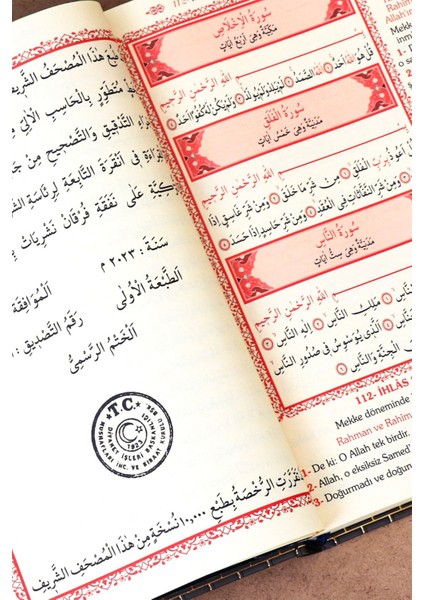 طبع هذا المصحف الشريف
متطور بالحاسب الآلي
التدقيق والتصحيح من
في أنقرة التابعة لرئاسة
على نفقة فرقان نشريات
سنة : ٢٠٢٣ م
الطبعة الأولى
الموافقة
رقم التصديق :
الختم الرسمي
T.C.
DİYANET İŞLERİ BAŞKANLIĞI
MUSHAFLARI İNC. VE KIRAAT KURULU BŞK
تقررت الرخصة بطبع ١٠,٠٠٠ نسخة من هذا المصحف الشريف
سُورَةُ الْاِخْلَاصِ
مَكِّيَّةٌ وَهِىَ اَرْبَعُ اٰيَاتٍ
اللّٰهِ الرَّحْمٰنِ الرَّحِيمِ
قُلْ هُوَ اللّٰهُ اَحَدٌ اَللّٰهُ الصَّمَدُ لَمْ يَلِدْ وَلَمْ يُولَدْ وَلَمْ يَكُنْ لَهُ كُفُوًا اَحَدٌ
سُورَةُ الْفَلَقِ
مَدَنِيَّةٌ وَهِىَ خَمْسُ اٰيَاتٍ
اللّٰهِ الرَّحْمٰنِ الرَّحِيمِ
اَعُوذُ بِرَبِّ الْفَلَقِ مِنْ شَرِّ مَا خَلَقَ وَمِنْ شَرِّ غَاسِقٍ اِذَا
وَمِنْ شَرِّ النَّفَّاثَاتِ فِى الْعُقَدِ وَمِنْ شَرِّ حَاسِدٍ اِذَا حَسَدَ
سُورَةُ النَّاسِ
مَدَنِيَّةٌ وَهِىَ سِتُّ اٰيَاتٍ
اللّٰهِ الرَّحْمٰنِ الرَّحِيمِ
النَّاسِ مَلِكِ النَّاسِ اِلٰهِ النَّاسِ
اَلَّذِى يُوَسْوِسُ فِى صُدُورِ النَّاسِ
الْجِنَّةِ وَالنَّاسِ
112- İHLÂS
Mekke döneminde
Rahman ve Rahim
1- De ki: O Allah tek birdir.
2- Allah, o eksiksiz Samed'
3- Doğurmadı ve doğun
Rahim
Allah'ı
Mekke
inm
1- D
o sa
2-